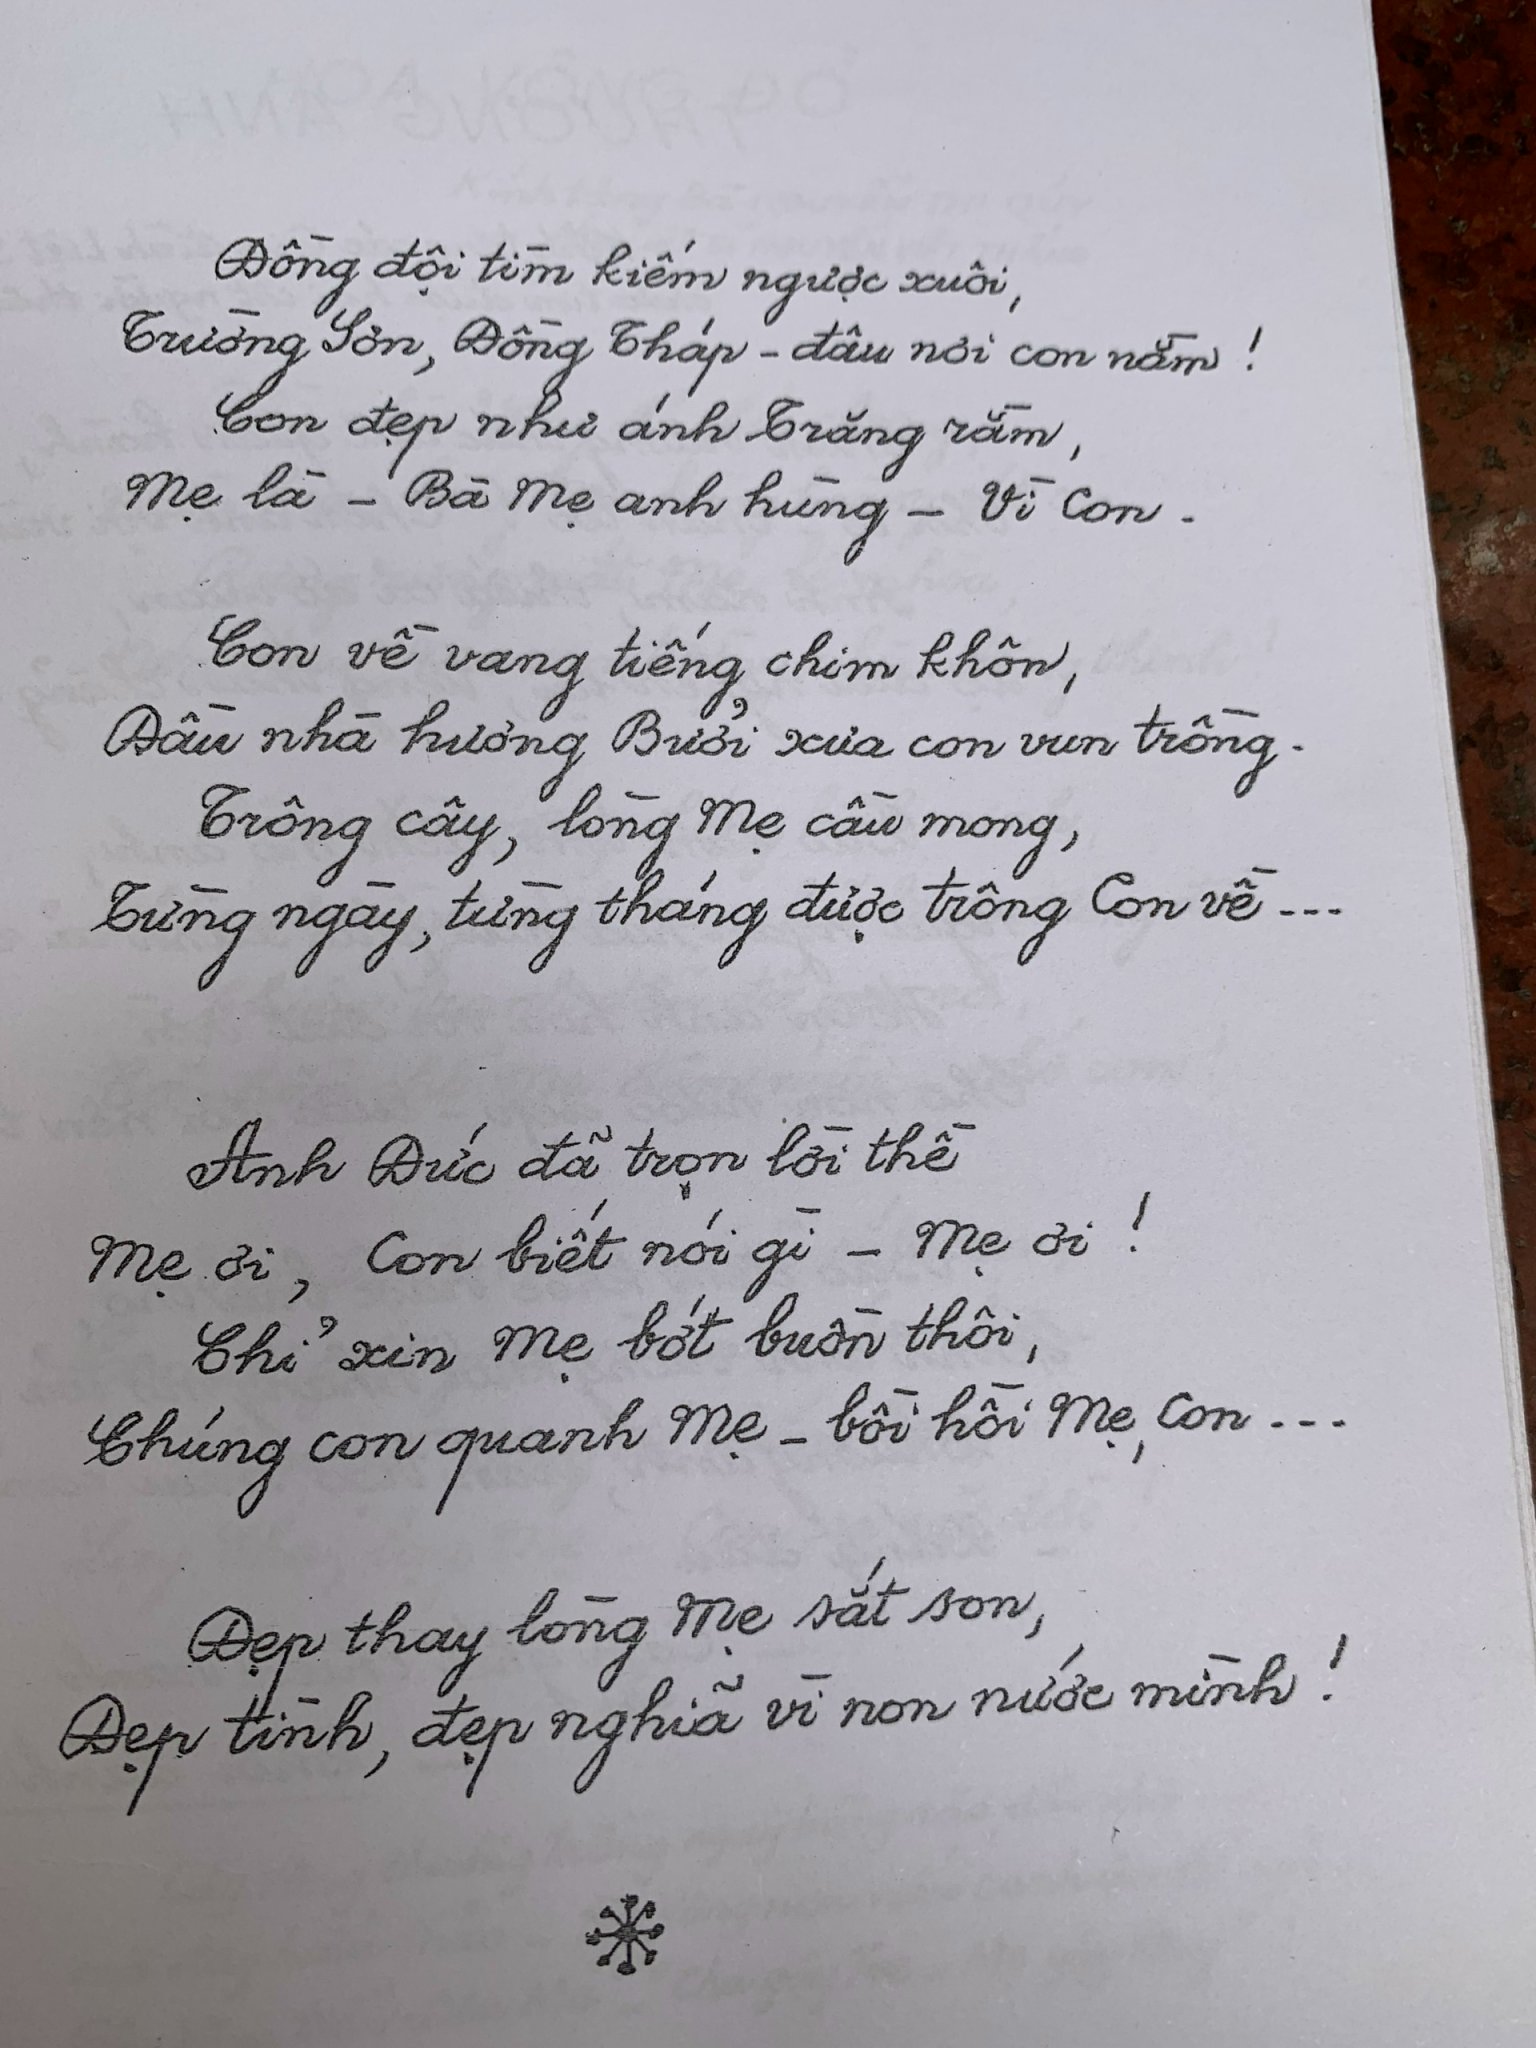 Đồng đội tìm kiếm ngược xuôi,
Trường Sơn, Đồng Tháp - đâu nơi con nằm !
Con đẹp như ánh Trăng rằm,
Mẹ là - Bà Mẹ anh hùng - Vì Con.
Con về vang tiếng chim khôn,
Đầu nhà hương Bưởi xưa con vun trồng.
Trông cây, lòng Mẹ cầu mong,
Từng ngày, từng tháng được trông Con về ---
Anh Đức đã trọn lời thề
Mẹ ơi, Con biết nói gì - Mẹ ơi !
Chỉ xin Mẹ bớt buồn thôi,
Chúng con quanh Mẹ - bồi hồi Mẹ, Con ---
Đẹp thay lòng Mẹ sắt son,
Đẹp tình, đẹp nghiã vì non nước mình !